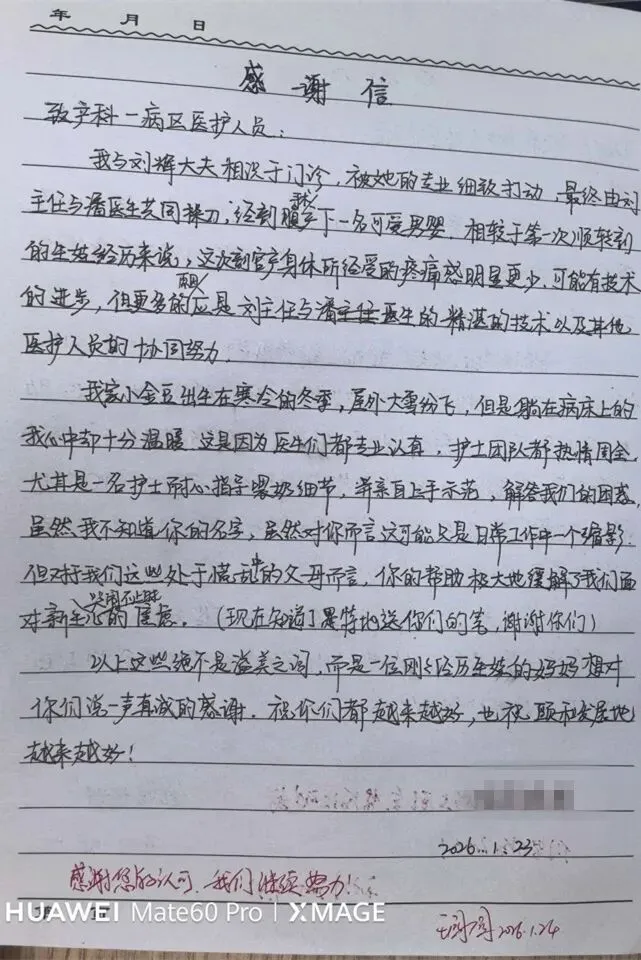 年 月 日
感谢信
致产科一病区医护人员:
我与刘辉大夫相识于门诊,被她的专业细致打动,最终由刘
主任与潘医生共同操刀,经剖腹产下一名可爱男婴.相较于第一次顺转剖
的生娃经历来说,这次剖宫产身体所经受的疼痛感明显更少.可能有技术
的进步,但更多的应是刘主任与潘医生的精湛的技术以及其他
医护人员的协同努力.
我家小金豆出生在寒冷的冬季,屋外大雪纷飞,但是躺在病床上的
我心中却十分温暖.这是因为医生们都专业认真,护士团队都热情周全.
尤其是一名护士耐心指导喂奶细节,并亲自上手示范,解答我们的困惑.
虽然我不知道你的名字,虽然对你而言这可能只是日常工作中一个缩影.
但对于我们这些处于慌乱中的父母而言,你的帮助极大地缓解了我们面
对新生儿哭闹不止的焦虑.(现在知道了是特地送你们的笔,谢谢你们)
以上这些绝不是溢美之词,而是一位刚刚经历生娃的妈妈想对
你们说一声真诚的感谢.祝你们都越来越好,也祝颐和发展地
越来越好!
2026.1.23
感谢您的认可,我们继续努力!
2026.1.24
HUAWEI Mate60 Pro | XMAGE